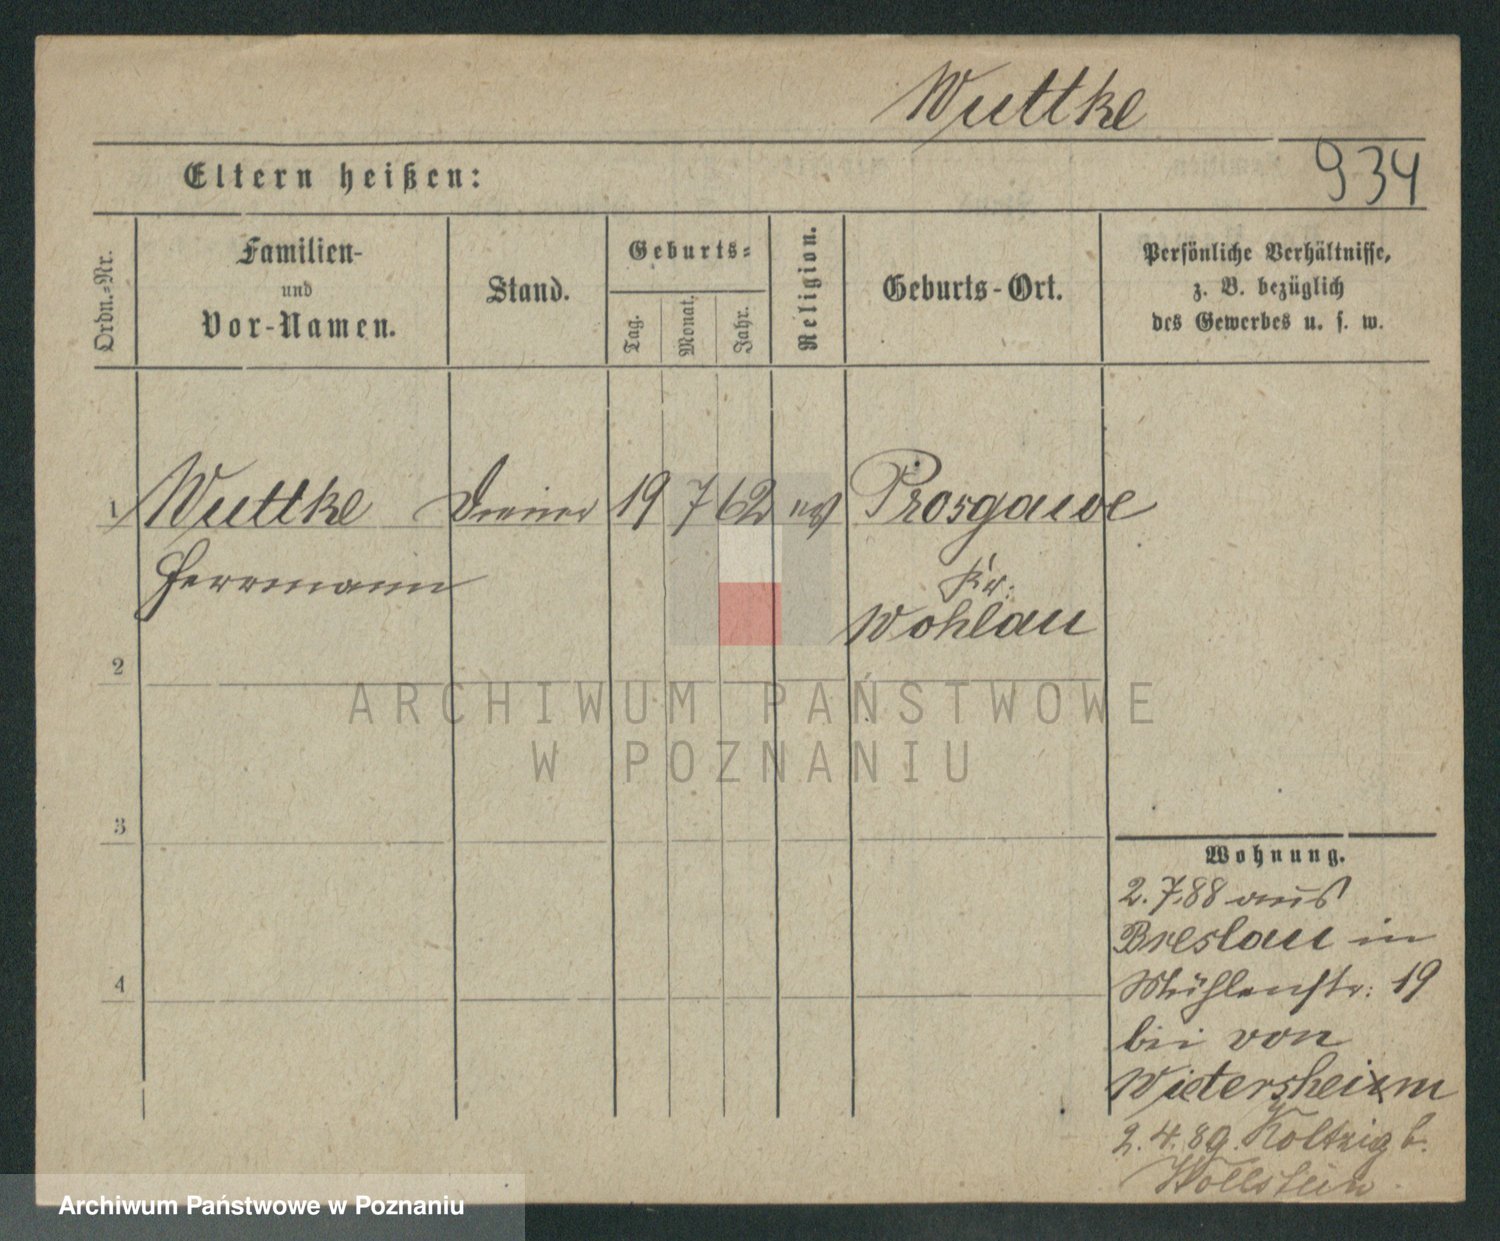 Wuttke
934
Eltern heißen:
Ordn.-Nr.
Familien-
und
Vor-Namen.
Stand.
Geburts-
Tag.
Monat.
Jahr.
Religion.
Geburts-Ort.
Persönliche Verhältnisse,
z. B. bezüglich
des Gewerbes u. s. w.
1 Wuttke Diener 19 7 62 ev Prosgawe
Herrmann
Kr:
Wohlau
2
ARCHIWUM PAŃSTWOWE
W POZNANIU
3
4
Wohnung.
2.7.88 aus
Breslau in
Mühlenstr: 19
bei von
Wietersheim
2.4.89. b.
Wollstein
Archiwum Państwowe w Poznaniu